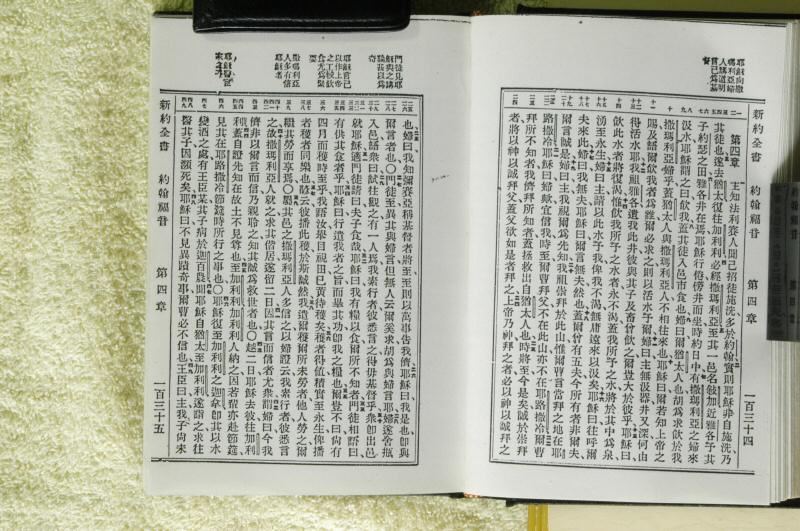 新約全書
約翰福音
第四章
一百三十四
耶穌向撒
瑪利亞婦
人講道明
言己為基
督
第四章
主知法利賽人聞己招徒施洗多於約翰實則耶穌非自施洗乃
其徒也遂去猶太復往加利利必經撒瑪利亞至其一邑名敍加近雅各予其
子約瑟之田雅各井在焉耶穌行倦傍井而坐時約日中有撒瑪利亞之婦來
汲水耶穌謂之曰飲我蓋其徒入邑市食也婦曰爾猶太人也胡為求飲於我
撒瑪利亞婦乎蓋猶太人與撒瑪利亞人不相往來也耶穌曰爾若知上帝之
賜及語爾飲我者為誰爾必求之則以活水予爾婦曰主無汲器井又深何由
得活水耶我祖雅各遺我此井彼與其子及畜曾飲之爾豈大於彼乎耶穌曰
飲此水者將復渴惟飲我所予之水者永不渴蓋我所予之水將於其中為泉
湧至永生婦曰主請以此水予我俾我不渴無庸遠來以汲矣耶穌曰往呼爾
夫來此婦曰我無夫耶穌曰爾言無夫然也蓋爾曾有五夫今所有者非爾夫
爾言誠是婦曰主我視爾為先知我祖崇拜於此山惟爾曹言當拜之地在耶
路撒冷耶穌曰婦歟宜信我時至爾曹拜父不在此山亦不在耶路撒冷爾曹
拜所不知者我儕拜所知者蓋拯救出自猶太人也時將至今是矣誠於崇拜
者將以神以誠拜父蓋父欲如是者拜之上帝乃神拜之者必以神以誠拜之
門徒見耶
穌與之講
論甚以為
奇
耶穌言己
以作上帝
之工較飲
食尤為緊
要
撒瑪利亞
人多有信
耶穌者
也婦曰我知彌賽亞稱基督者將至至則以萬事告我儕耶穌曰我是也卽與
爾言者也〇門徒至異其與婦言但無人云爾奚求胡為與婦言耶婦遂舍瓶
入邑語衆曰試往觀之有一人焉我素行者彼悉言之得毋基督乎衆卽出邑
就耶穌適門徒請曰夫子食哉耶穌曰我有糧以食爾所不知者門徒相語曰
有供其食者乎耶穌曰行遣我者之旨而畢其功卽我之糧也爾豈不曰尙有
四月而穫時至乎我語汝舉目視田已黃待穫矣穫者得值積實至永生俾播
者穫者同樂也諺云彼播此穫於斯誠然我遣爾穫爾所未勞者他人勞之爾
續其勞而享焉〇緣其邑之撒瑪利亞人多信之以婦證云我素行者彼悉言
之故撒瑪利亞人就之求其偕居遂留二日因其言而信者尤衆謂婦曰今我
儕非以爾言而信乃親聆之知其誠為救世者也〇越二日耶穌去彼往加利
利蓋自證先知在故土不見尊也至加利利加利利人納之因若輩亦赴節筵
見其在耶路撒冷節筵時所行之事也〇耶穌復至加利利之迦拿卽其以水
變酒之處有王臣某其子病於迦百農聞耶穌自猶太至加利利遂詣之求往
醫其子因瀕死矣耶穌曰不見異蹟奇事爾曹必不信也王臣曰主我子尙未
新約全書
約翰福音
第四章
一百三十五